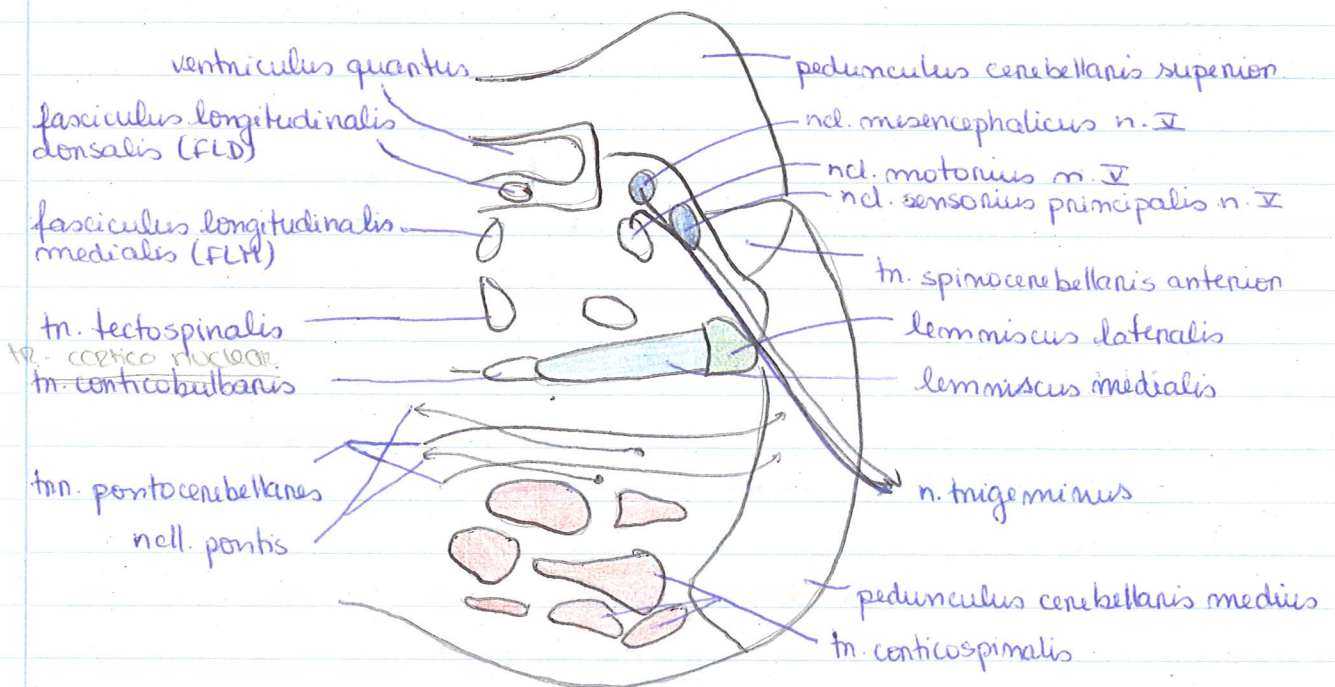 ventriculus quartus
fasciculus longitudinalis
dorsalis (FLD)
fasciculus longitudinalis
medialis (FLM)
tr. tectospinalis
tr. cortico nuclear.
tr. corticobulbaris
trr. pontocerebellares
ncll. pontis
pedunculus cerebellaris superior
ncl. mesencephalicus n. V
ncl. motorius n. V
ncl. sensorius principalis n. V
tr. spinocerebellaris anterior
lemniscus lateralis
lemniscus medialis
n. trigeminus
pedunculus cerebellaris medius
tr. corticospinalis